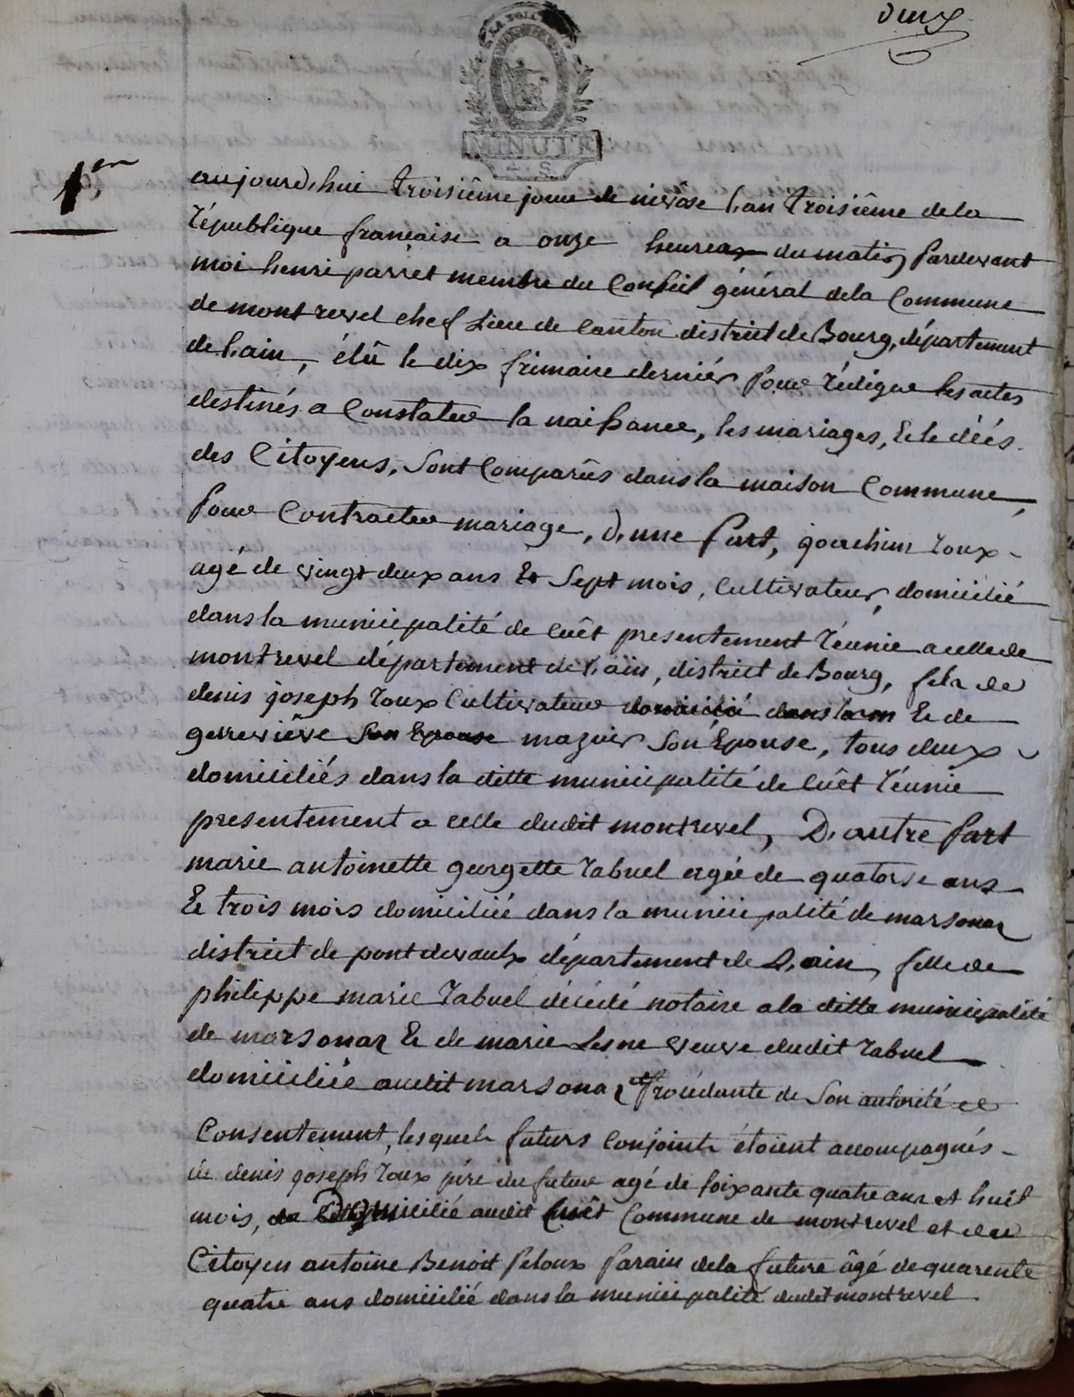 deux
LA LOI
MINUTE
1er
aujourd,hui troisiême jour de nivôse l,an troisiême dela
république française a onze heures du matin pardevant
moi henri parret membre du Conseil général dela Commune
de montrevel chef Lieu de Canton district de Bourg, département
de l,ain, élû le dix frimaire dernier pour rédiger les actes
destinés a Constater la naissance, les mariages, & le décés
des Citoyens, sont Comparûs dans la maison Commune,
pour Contracter mariage, d,une part, joachim roux
agé de vingt deux ans & sept mois, Cultivateur, domicilié
dans la municipalité de Cuêt presentement réunie a celle de
montrevel département de l,ain, district de Bourg, fils de
denis joseph roux Cultivateur domicilié dans la m & de
genneviêve son Epouse mazuir son Epouse, tous deux
domiciliés dans la ditte municipalité de Cuêt réunie
presentement a celle dudit montrevel, D,autre part
marie antoinette georgette rabuel agée de quatorse ans
& trois mois domiciliée dans la municipalité de marsonas
district de pont devaulx département de L,ain, fille de
philippe marie rabuel décédé notaire a la ditte municipalité
de marsonas & de marie Lesne veuve dudit rabuel
domiciliée audit marsonas et procédante de son autorité et
Consentement, lesquels futurs Conjoints étoient accompagnés
de denis joseph roux pére du futur agé de soixante quatre ans et huit
mois, domicilié audit Cuêt Commune de montrevel et du
Citoyen antoine Benoit peloux parain dela future âgé de quarente
quatre ans domicilié dans la municipalité dudit montrevel.